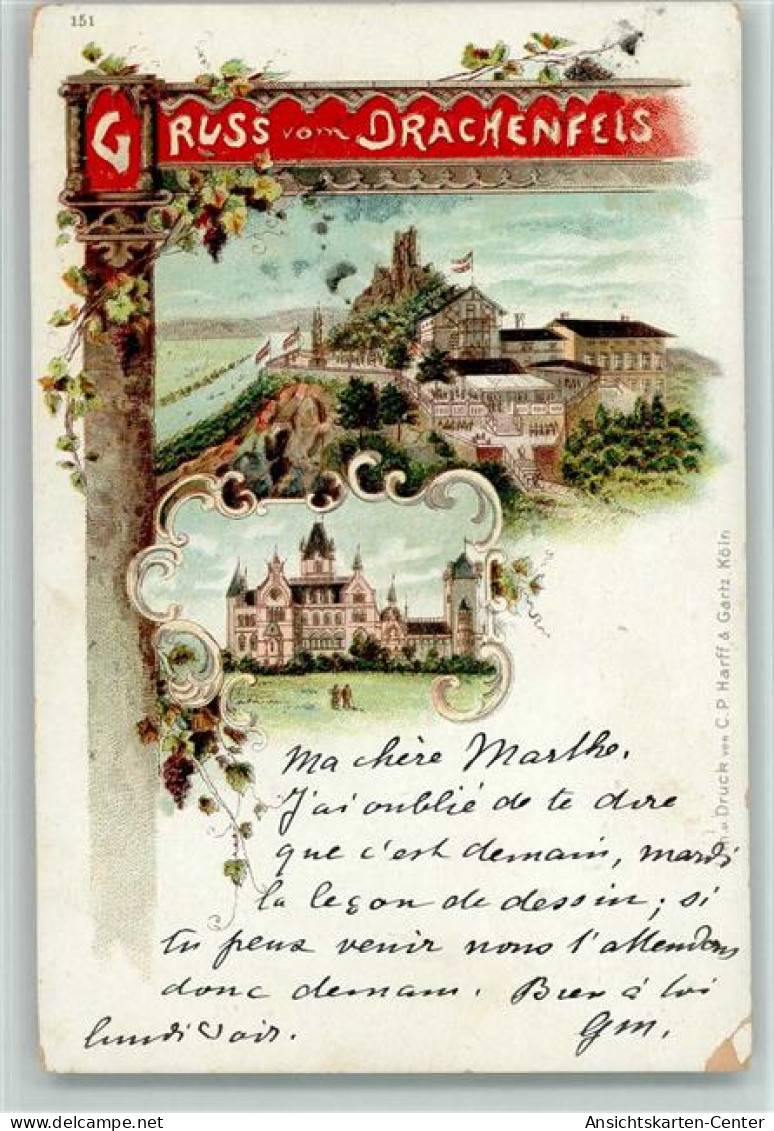 151
GRUSS vom DRACHENFELS
u. Druck von C. P. Harff & Gartz, Köln
Ma chère Marthe,
J'ai oublié de te dire
que c'est demain, mardi
la leçon de dessin; si
tu peux venir nous t'attendons
donc demain. Bien à toi
lundi soir. Gm.
Ansichtskarten-Center